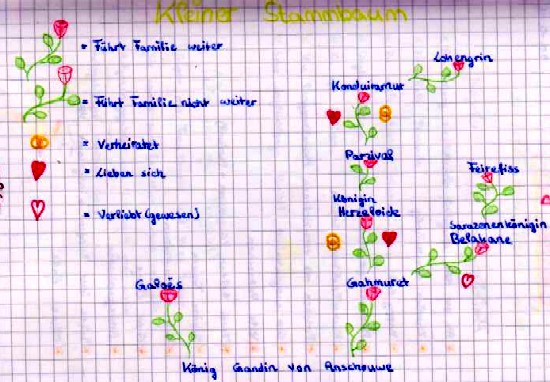 Kleiner Stammbaum
= Führt Familie weiter
= Führt Familie nicht weiter
= Verheiratet
= Lieben sich
= Verliebt (gewesen)
Lohengrin
Konduiramur
Parzival
Feirefiss
Königin
Herzeloide
Sarazenenkönigin
Belakane
Galoës
Gahmuret
König Gandin von Anschouwe